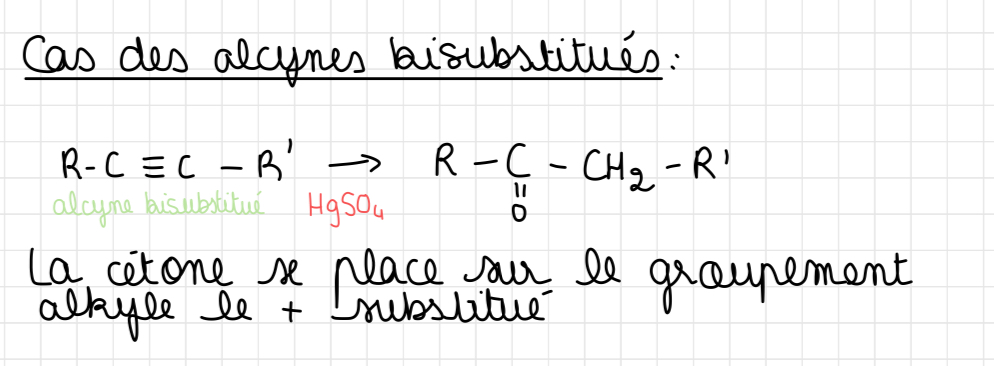 Cas des alcynes bisubstitués :
R-C ≡ C - R' → R - C - CH₂ - R'
alcyne bisubstitué HgSO₄ ||
O
La cétone se place sur le groupement
alkyle le + substitué